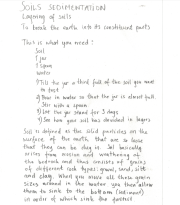 SOILS SEDIMENTATION
Layering of soils
To break the earth into its constituent parts
This is what you need:
Soil
1 jar
1 spoon
Water
1) Fill the jar a third full of the soil you want
to test
2) Pour in water so that the jar is almost full
Stir with a spoon
3) Let the jar stand for 3 days
4) See how your soil has divided in layers
Soil is defined as the solid particles on the
surface of the earth that are so loose
that they can be dug in. Soil basically
arises from erosion and weathering of
the bedrock and thus consists of grains
of different rock types: gravel, sand, silt
and clay. When you mix all these grain
sizes around in the water you then allow
them to sink to the bottom (sediment)
in order of which sink the fastest